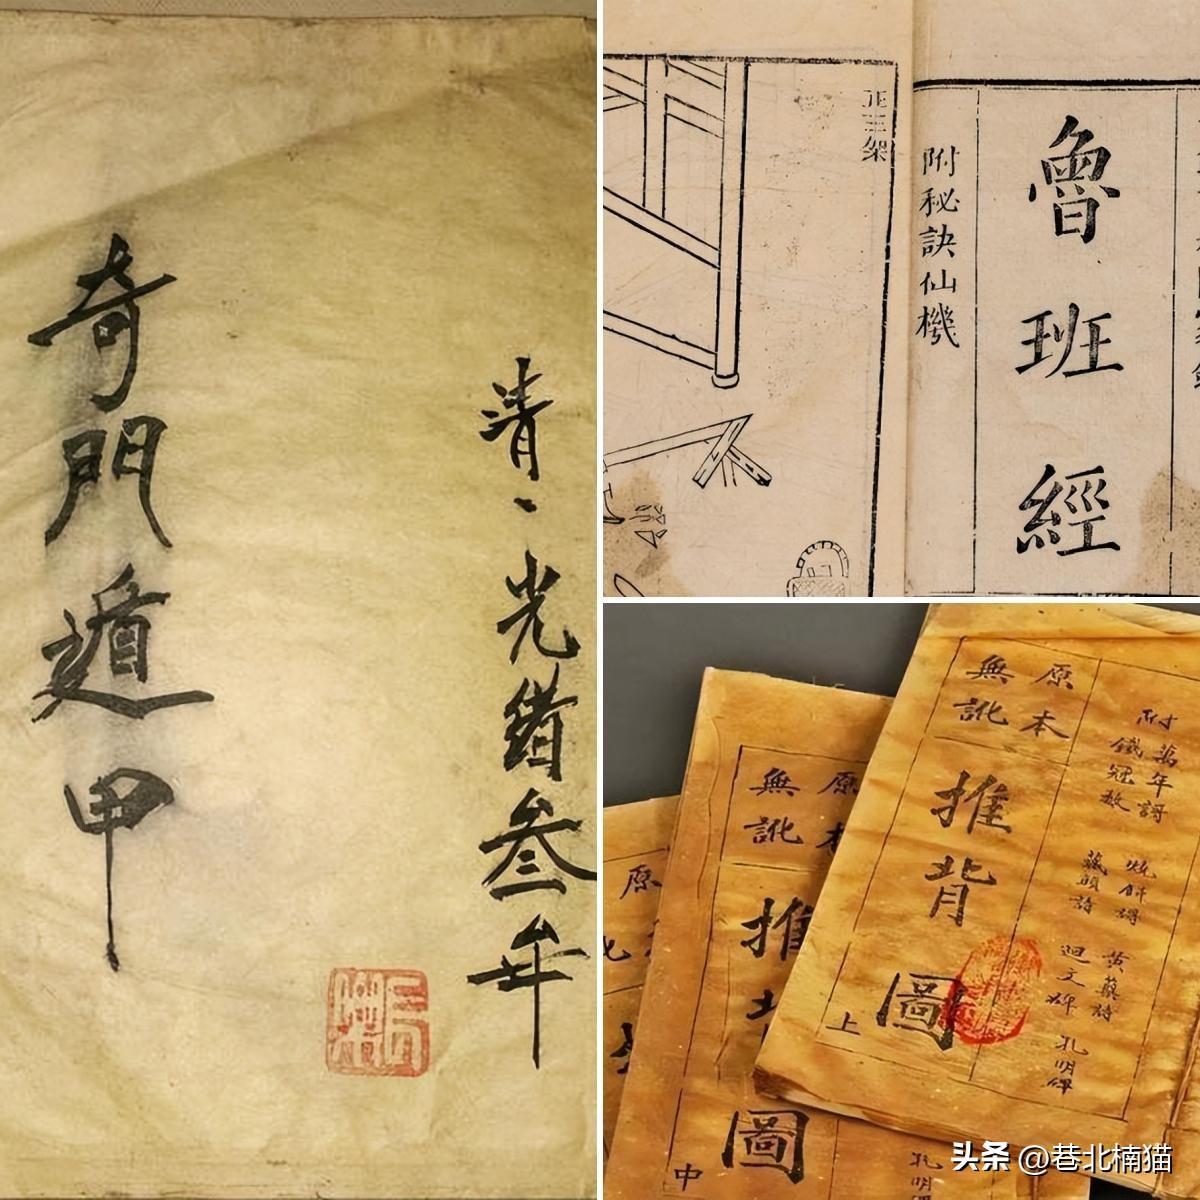 清、光绪叁年
奇門遁甲
魯班經
附秘訣仙機
正三架
原本
無訛
推背圖
上
附萬年調
鐵冠数
燒餅謌
藏頭詩
黄蘖詩
迴文碑
孔明碑
原
無訛
推
圖
中
孔明
原
头条 @巷北楠猫